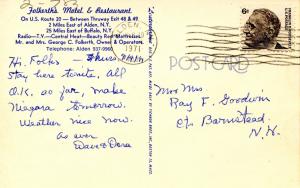 Folkerth's Motel & Restaurant
On U.S. Route 20 — Between Thruway Exit 48 & 49
2 Miles East of Alden, N.Y.
25 Miles East of Buffalo, N.Y.
Radio—T.V.—Central Heat—Beauty Rest Mattresses
Mr. and Mrs. George C. Folkerth, Owners & Operators
Telephone: Alden 937-
Hi. Folks — Thurs.
Stay here tonite, All
O.K. so far, make
Niagara tomorrow.
Weather nice now.
As ever
Dave & Dora
1971
6¢
POST CARD
Mr & Mrs
Ray F. Goodwin
Barnstead
N.H.